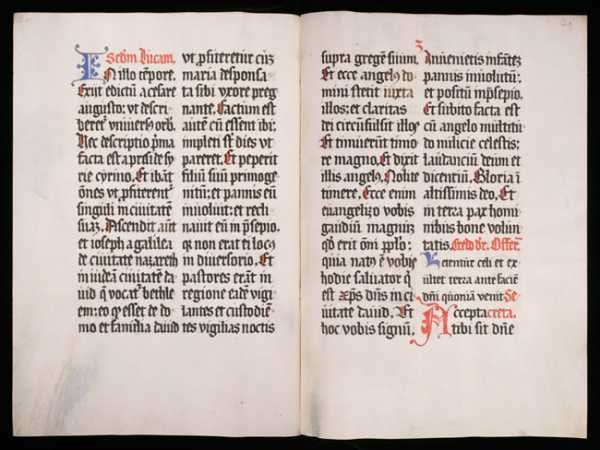 Scd̄m lucam.
In illo tēpore.
Exiit edictū a cesare
augusto: ut descri-
beret᷑ uniuersꝰ orb.
Hec descriptio p̄ma
facta est a preside sy-
rie cyrino. Et ibāt
om̄es ut ꝓfiterent᷑
singuli in ciuitatē
suaꝫ. Ascendit aut̄
et ioseph a galilea
de ciuitate nazareth
in iudeā ciuitatē da-
uid q̄ uocat᷑ bethle-
em: eo ꝙ esset de do-
mo et familia dauid
ut ꝓfiteretur cuꝫ
maria desponsa-
ta sibi uxore preg-
nante. Factum est
autē cū essent ibi:
impleti sūt dies ut
pareret. Et peperit
filiū suū primoge-
nitū: et pannis eū
inuoluit: et recli-
nauit eū in p̄sepio.
qꝫ non erat ei locꝰ
in diuersorio. Et
pastores erāt in
regione eadē uigi-
lantes et custodiē-
tes uigilias noctis
supra gregē suum.
Et ecce angelꝰ do-
mini stetit iuxta
illos: et claritas
dei circūfulsit illos
Et timuerūt timo-
re magno. Et dixit
illis angelꝰ. Nolite
timere. Ecce enim
euangelizo uobis
gaudiū magnuꝫ
qd̄ erit om̄i pplo:
quia natꝰ ē uobis
hodie saluator q̄
est xp̄s dn̄s in ci-
uitate dauid. Et
hoc uobis signū.
3
Inuenietis infāteꝫ
pannis inuolutū:
et positū in p̄sepio.
Et subito facta est
cū angelo multitu-
do milicie celestis:
laudanciū deum et
dicentiū. Gloria ī
altissimis deo. Et
in terra pax homi-
nibus bone uolun-
tatis. Credo. Offert̄.
Letentur celi et ex-
ultet terra ante faciē
dn̄i quoniā uenit. Se-
Accepta creta.
tibi sit dn̄e